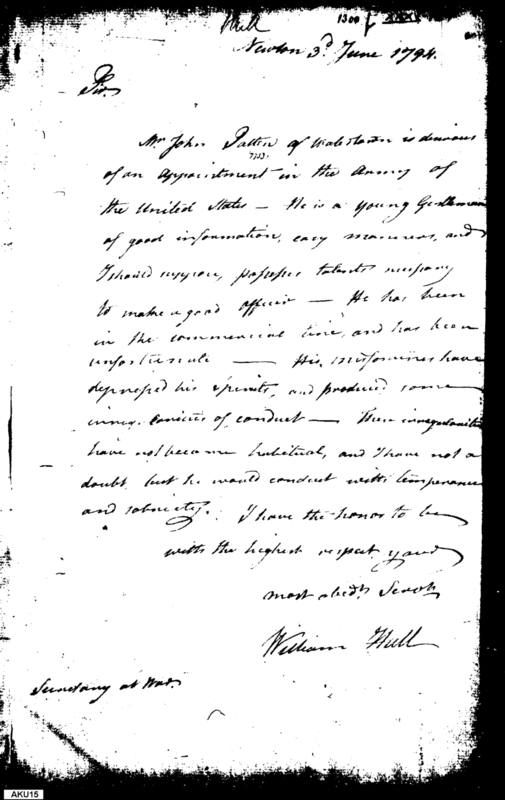 Hull
1300
Newton 3d June 1794.
Sir.
Mr. John Patten of Watertown is desirous
of an appointment in the Army of
the United States — He is a young Gentleman
of good information, easy manners, and
I should suppose, possesses talents necessary
to make a good officer — He has been
in the commercial line, and has been
unfortunate — His misfortunes have
depressed his spirits, and produced some
of conduct — These irregularities
have not become habitual, and I have not a
doubt but he would conduct with temperance
and sobriety. I have the honor to be
with the highest respect your
most obedt. Servt.
William Hull
Secretary at War.
AKU15